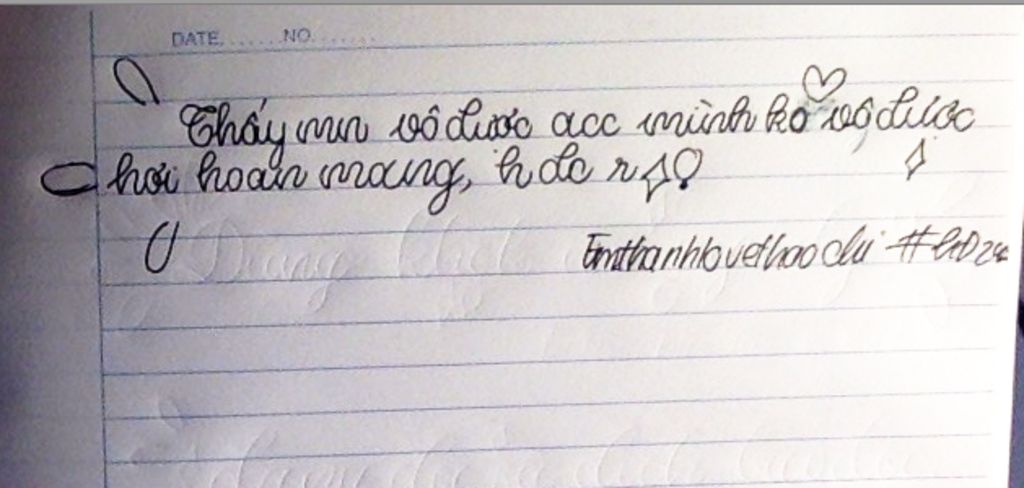 DATE.......NO........
Thấy mn vô được acc mình ko vô được
hơi hoan mang, h đc r
Emthanhlovethaochi